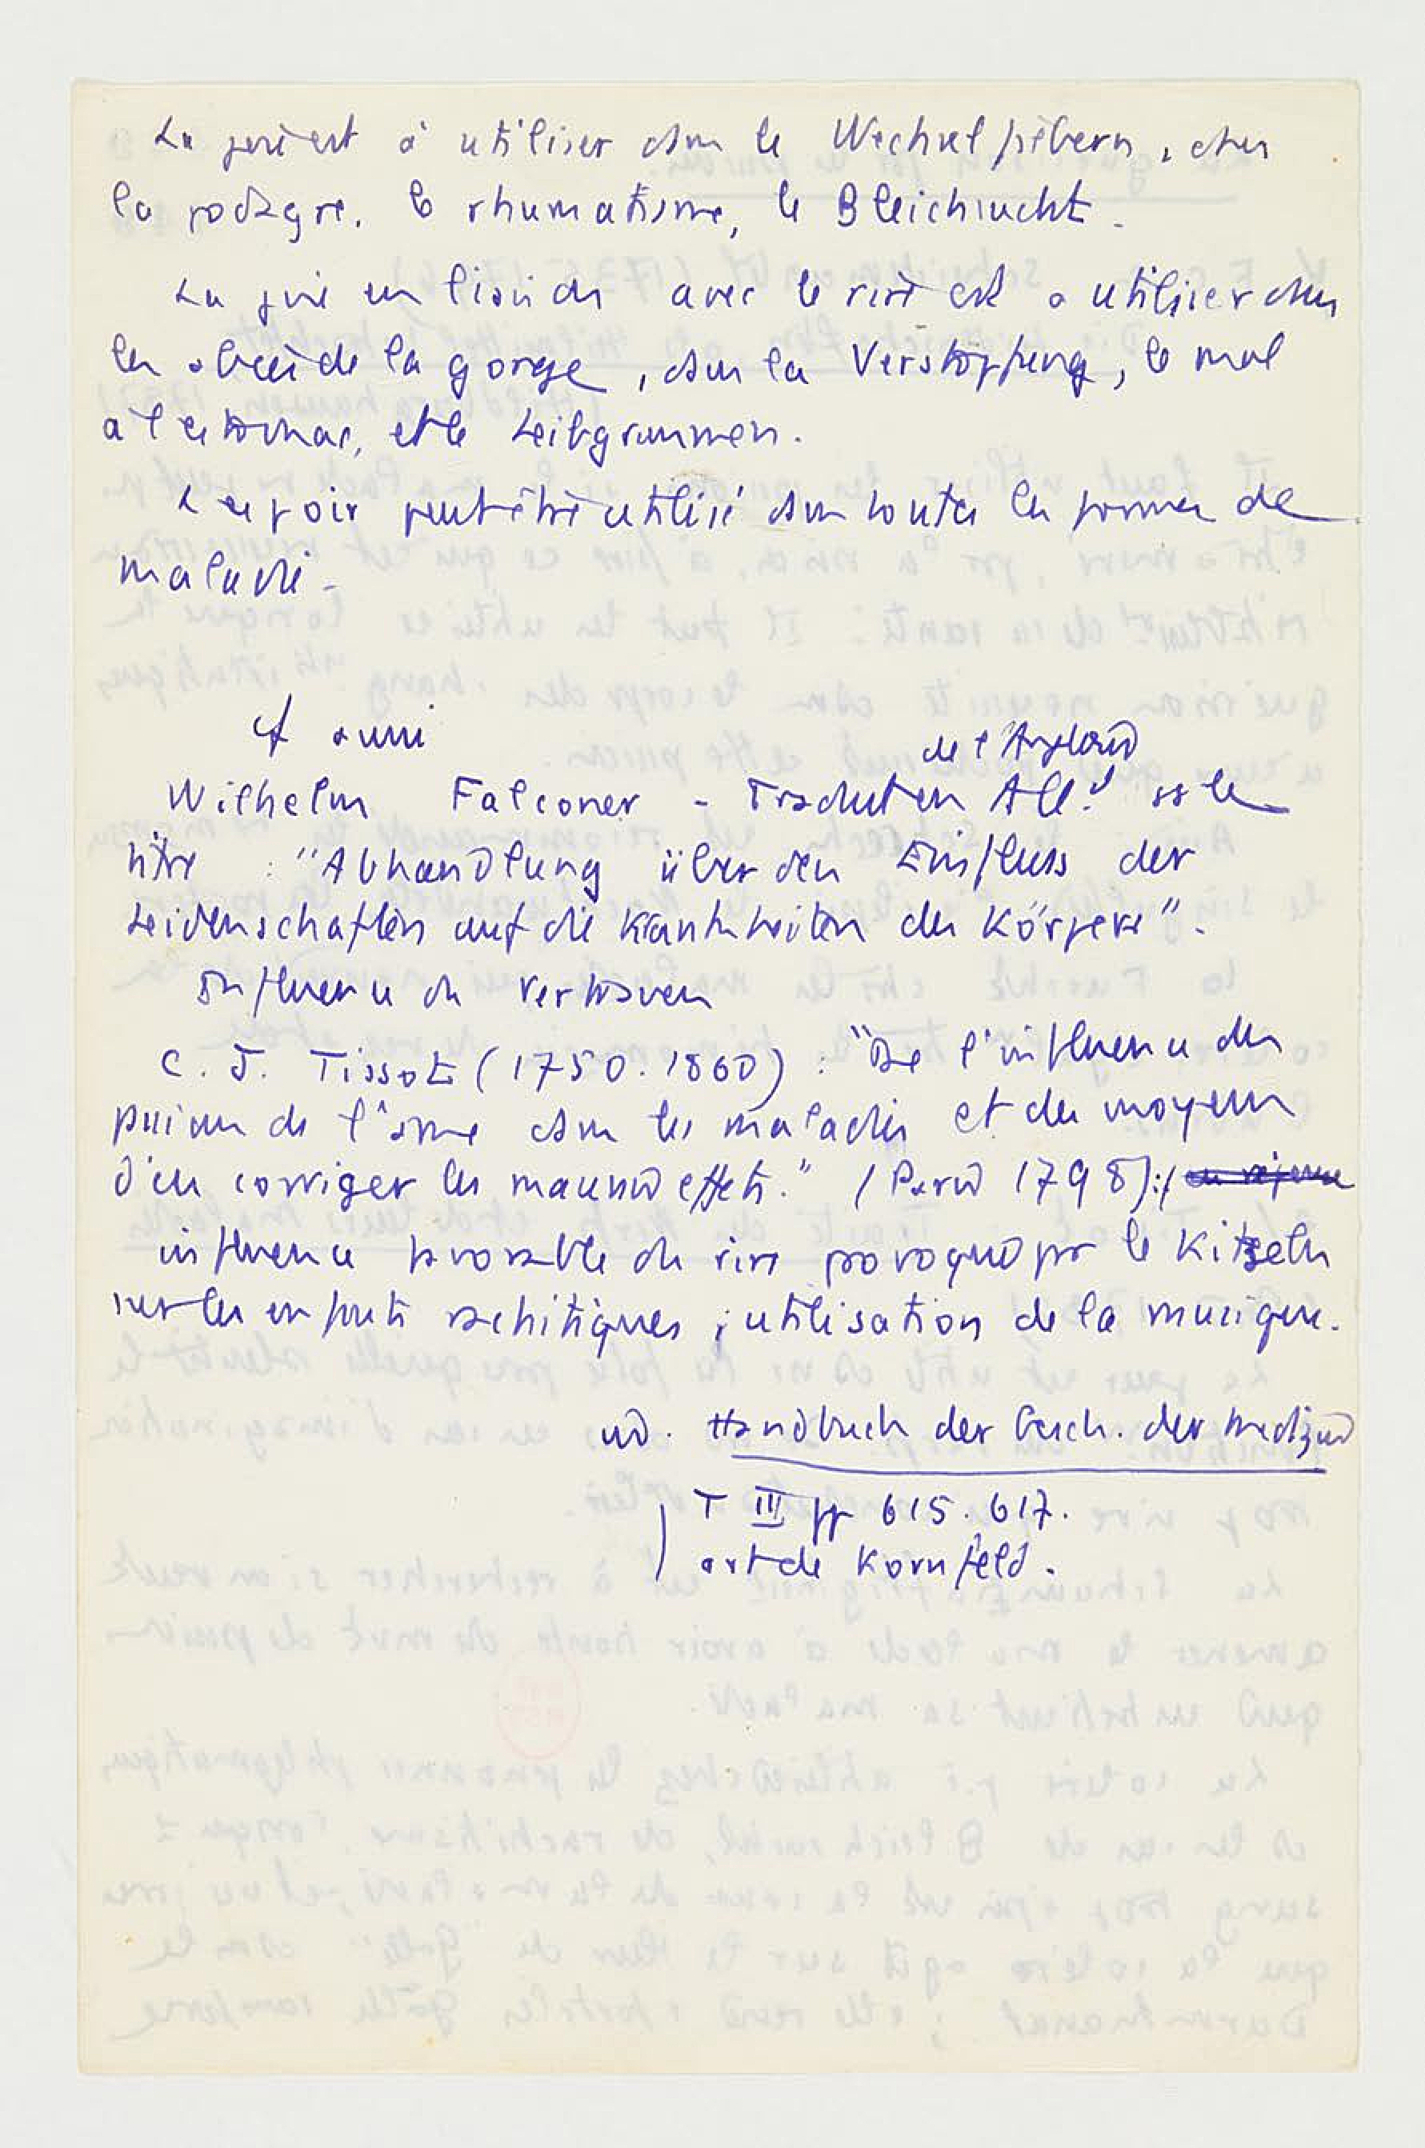 La joie est à utiliser dans le Wechselfiebern, dans
la podagre, le rhumatisme, le Bleichsucht.
La joie en liaison avec le rire est à utiliser dans
les abcès de la gorge, dans la Verstopfung, le mal
à l'estomac, et le Leibgrimmen.
L'espoir peut être utilisé dans toutes les formes de
maladie.
cf aussi
de l'Anglais
Wilhelm Falconer - Traduit en All. ss le
titre : "Abhandlung über den Einfluss der
Leidenschaften auf die Krankheiten des Körpers".
Influence du Vertrauen
C. J. Tissot (1750.1860) : "De l'influence des
passions de l'âme dans les maladies et des moyens
d'en corriger les mauvais effets." (Paris 1798) :
influence favorable du rire provoqué par le Kitzeln
sur les enfants rachitiques ; utilisation de la musique.
in Handbuch der Gesch. der Medizin
T III pp 615.617.
art de Kornfeld.